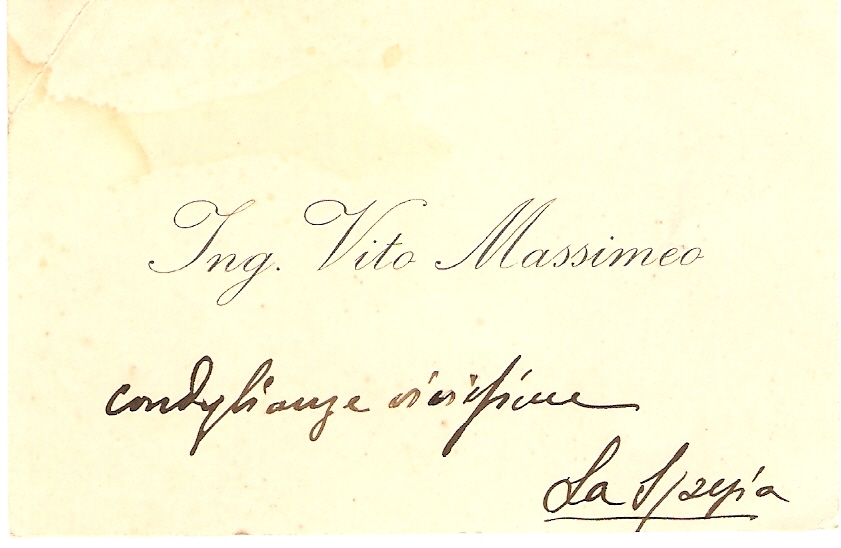 Ing. Vito Massimeo
condoglianze vivissime
La Spezia